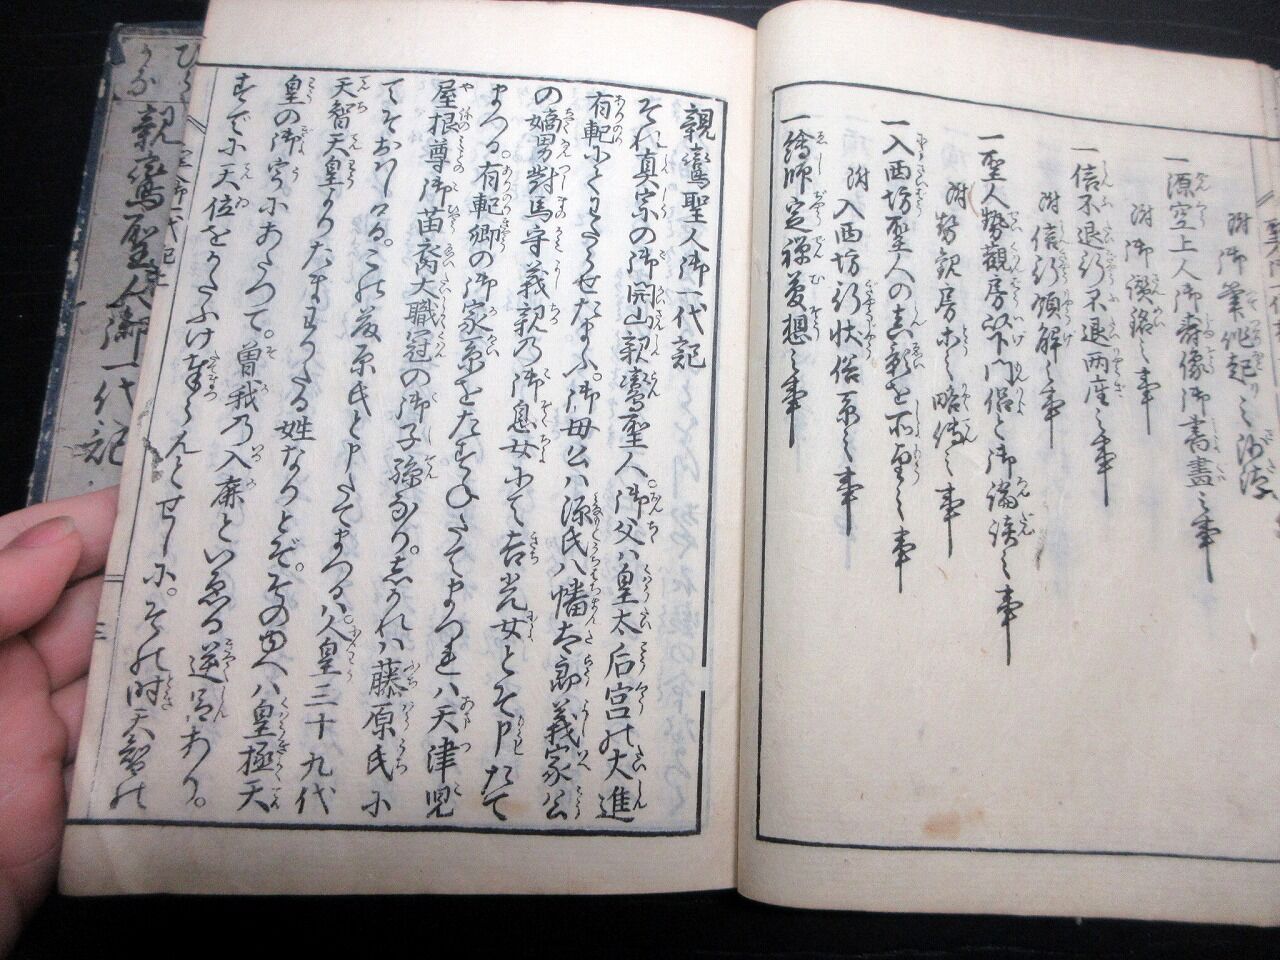 附御業作起り之沙汰
一源空上人御壽像御書畫之事
附御讃銘之事
一信不退行不退兩座之事
附信行領解之事
一聖人勢觀房以下門侶と御諍論之事
附勢觀房略傳之事
一入西坊聖人の真影を所望之事
附入西坊行状俗系之事
一繪師定禅夢想之事
親鸞聖人御一代記
それ真宗の御開山親鸞聖人。御父ハ皇太后宮の大進
有範にわたらせたまふ。御母公ハ源氏八幡太郎義家公
の嫡男對馬守義親乃御息女にて吉光女とぞ申たて
まつる有範卿の御家系をたづねたてまつれハ天津児
屋根尊御苗裔大職冠の御子孫なり。しかれハ藤原氏に
てぞおハしける。この藤原氏と申たてまつるハ人皇三十九代
天智天皇よりたまわりたる姓なりとぞ。そのゆへハ皇極天
皇の御宇にあたつて。曽我乃入鹿といゑる逆臣あり。
すでに天位をかたふけ奉らんとせしに。その時天智の
ひらかな
親鸞聖人御一代記
三